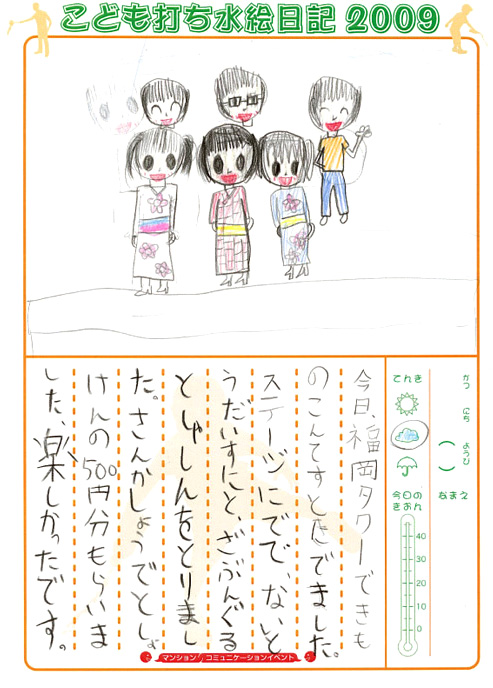 こども打ち水絵日記 2009
がつ にち ようび
( )
なまえ
てんき
今日の
きおん
40
30
20
10
0
今日、福岡タワーできも
のこんてすとにでました。
ステージにでで、ないと
うだいすにと、ざぶんぐる
としゃしんをとりまし
た。さんかしょうでとしょ
けんの500円分もらいま
した、楽しかったです。
マンション コミュニケーションイベント